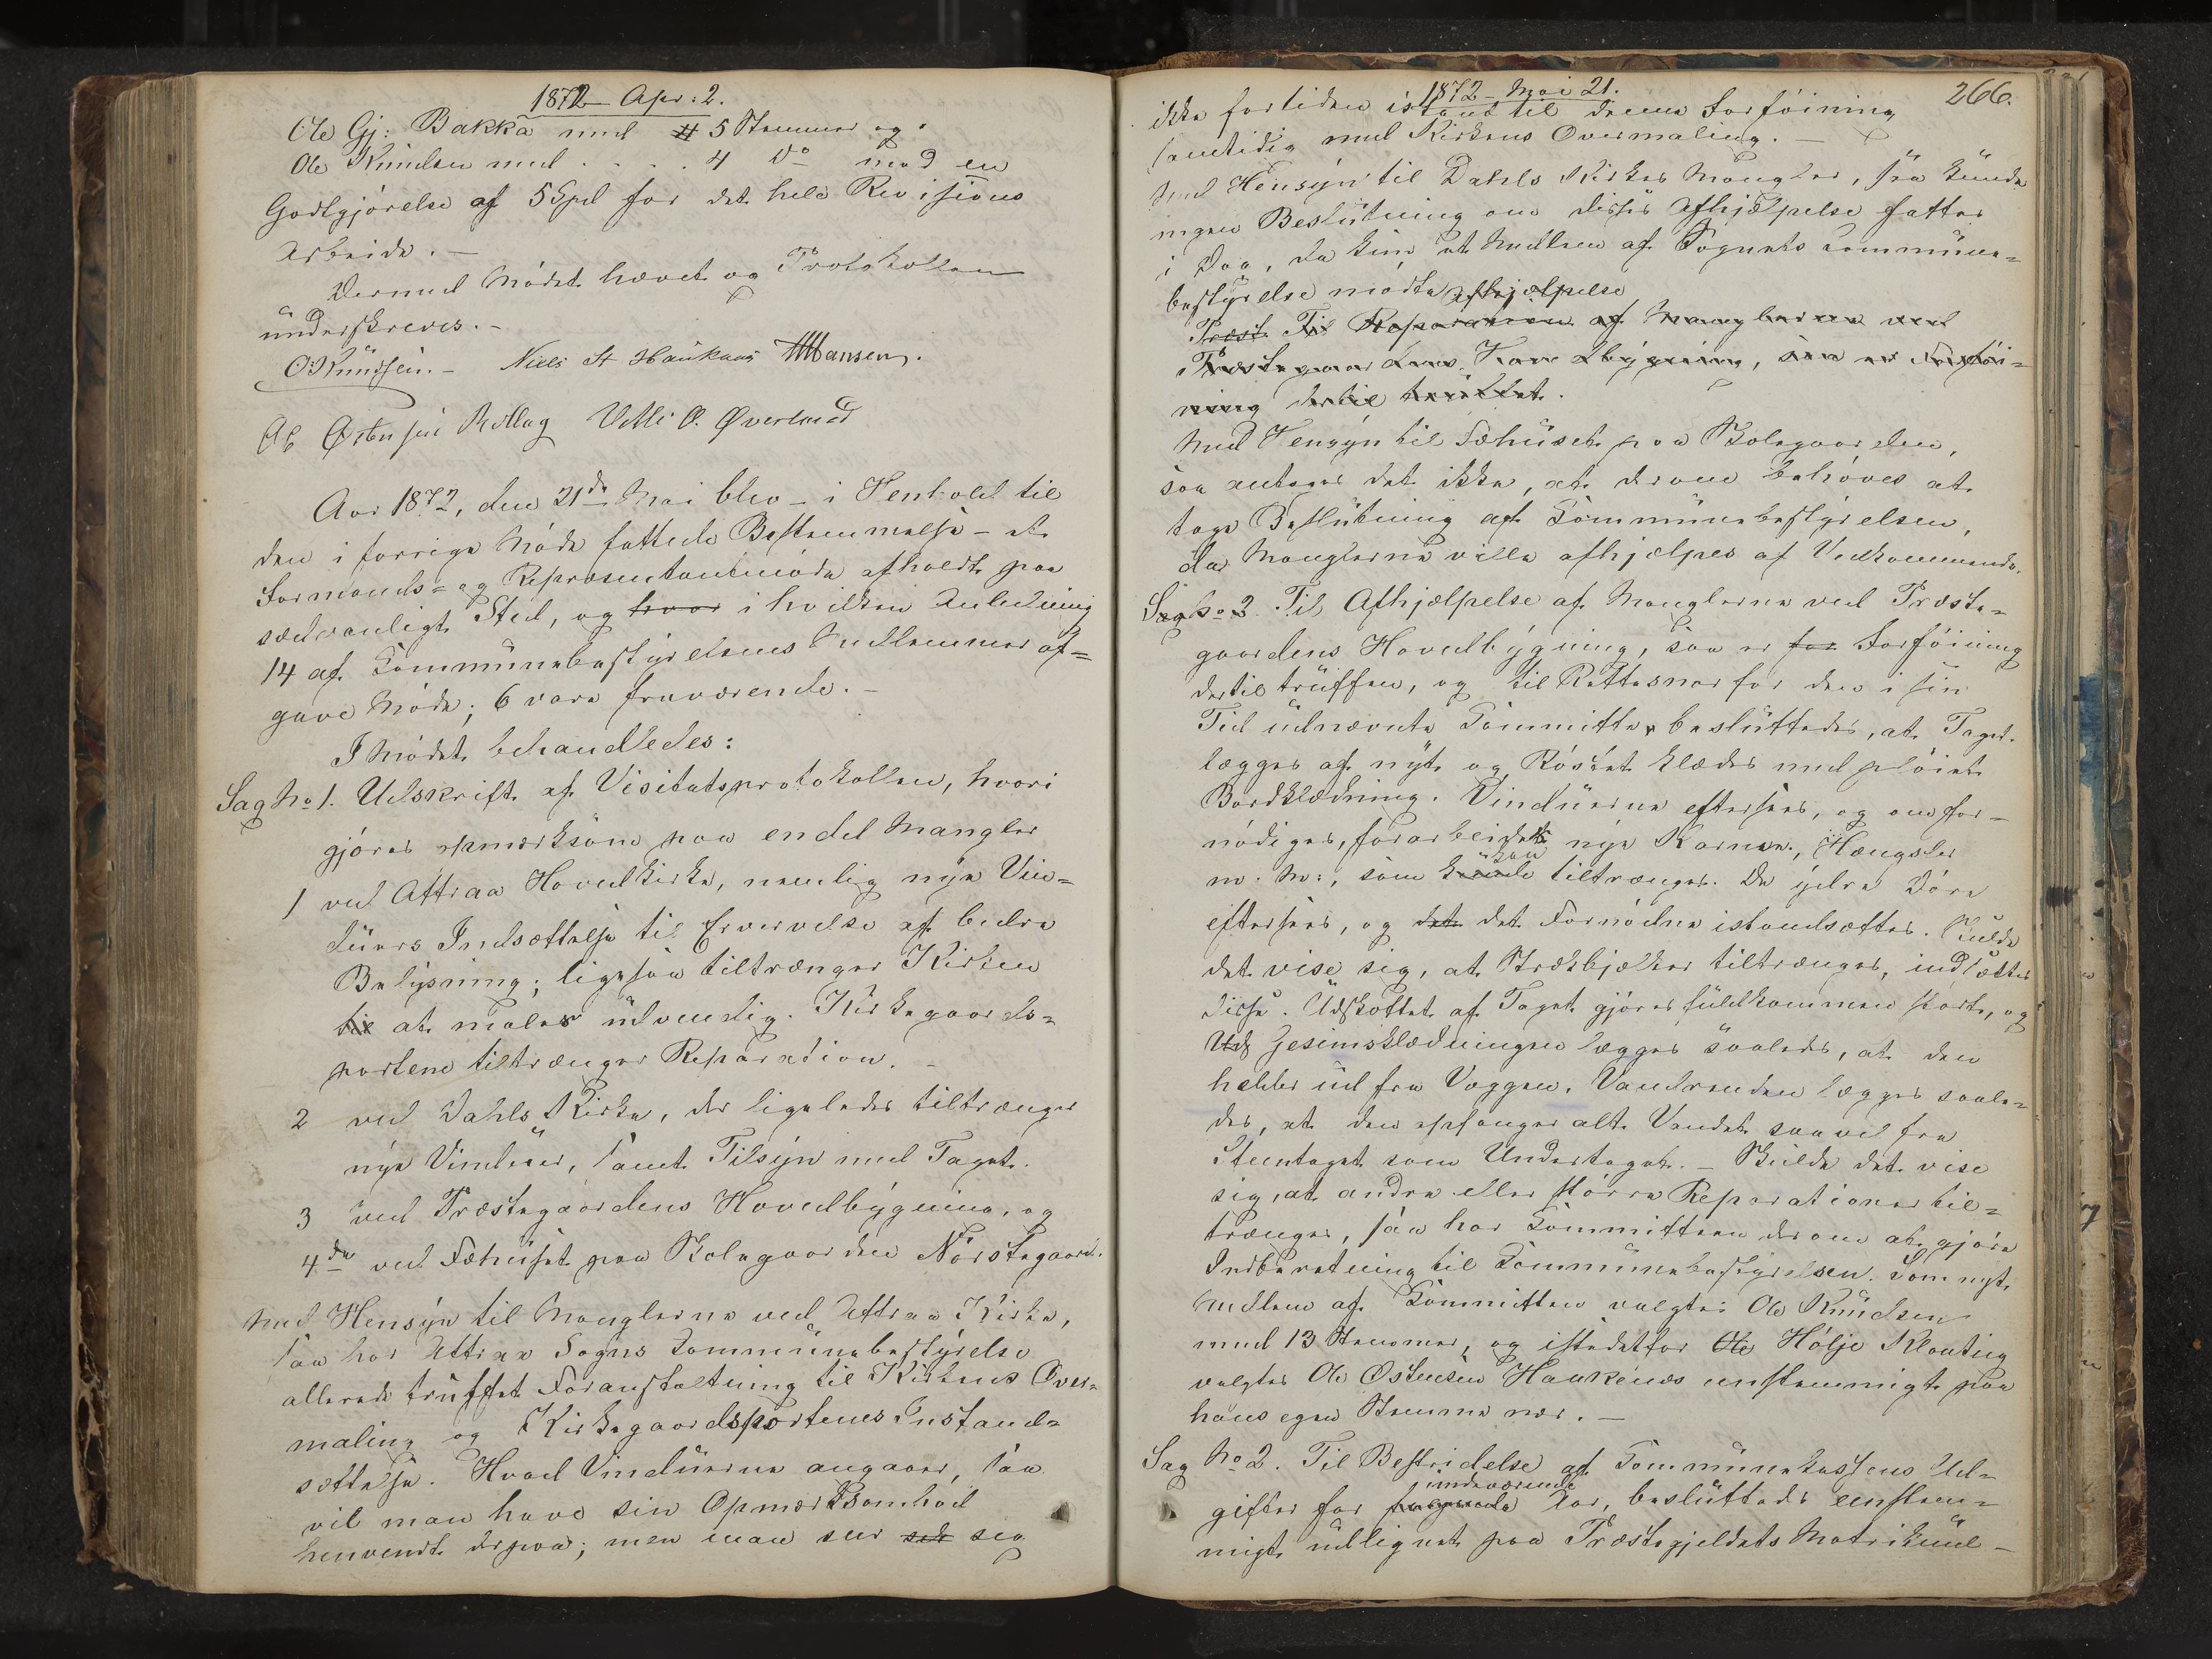 1872 - Apr: 2.
Ole Gj: Bakka med 5 Stemmer og
Ole Knudsen med . . . . 4 do med en
Godtgjörelse af 5 Spd for det hele Revisions
Arbeide. -
Dermed Mödet hævet og Protokollen
underskreves. -
O. Knudsen. - Niels St Haukaas HHansen.
Østensen Rollag Vetli O. Øverland
Aar 1872, den 21de Mai blev - i Henhold til
den i forrige Möde fattede Bestemmelse - et
Formands- og Repræsentantmöde afholdt paa
sædvanligt Sted, og hvor i hvilken Anledning
14 af Communebestyrelsens Medlemmer af-
gave Möde; 6 vare fraværende. -
I Mödet behandledes:
Sag No 1. Udskrift af Visitatsprotokollen, hvori
gjöres opmærksom paa endel Mangler
1 ved Attraa Hovedkirke, nemlig nye Vin-
duers Indsættelse til Erhvervelse af bedre
Belysning; ligesaa tiltrænger Kirken
til at males udvendig. Kirkegaards-
portene tiltrænger Reparation. -
2 ved Dahls Kirke, der ligeledes tiltrænger
nye Vinduer, samt Tilsyn med Taget.
3 ved Præstegaardens Hovedbygning, og
4de ved Fæhuset paa Bolegaarden Nörstegaard.
Med Hensyn til Manglerne ved Attraa Kirke,
saa har Attraa Sogns Communebestyrelse
allerede truffet Foranstaltning til Kirkens Over-
maling og Kirkegaardsportenes Istand-
sættelse. Hvad Vinduerne angaaer, saa
vil man have sin Opmærksomhed
henvendt derpaa; men man seer sig
1872 - Mai 21.
266.
ikke fortiden istand til denne Forföining
samtidig med Kirkens Overmaling. -
Med Hensyn til Dahls Kirkes Mangler, saa kunde
ingen Beslutning om disses Afhjælpelse fattes
i Dag, da kun et Medlem af Sognets Commune-
bestyrelse mödte
afhjælpelse
Præst Til Reparation af Manglerne ved
Præstegaardens Hovedbygning, saa er Forföi-
ning dertil truffet.
Med Hensyn til Fæhuset paa Bolegaarden,
saa antages det ikke, at derom behöves at
tage Beslutning af Communebestyrelsen,
da Manglerne ville afhjælpes af Vedkommende.
Sag No 3. Til Afhjælpelse af Manglerne ved Præste-
gaardens Hovedbygning, saa er for Forföining
dertil truffen, og til Rettesnor for den i sin
Tid udnævnte Committe, besluttedes, at Taget
lægges af nyt og Röstet klædes med plöiet
Bordklædning. Vinduerne eftersees, og om for-
nödiges, forarbeides nye Karme, Hængsler
m. m:, som kunde tiltrænges. De ydre Döre
eftersees, og det det Fornödne istandsættes. Skulde
det vise sig, at Strækbjælker tiltrænges, indsættes
disse. Udskottet af Taget gjöres fuldkommen stort, og
Uds Gesimsklædningen lægges saaledes, at den
helder ud fra Væggen. Vandrenden lægges saale-
des, at den opfanger alt Vandet saavel fra
Steentaget som Undertaget. - Skulde det vise
sig, at andre eller större Reparationer til-
trænges, saa har Committeen derom at gjöre
Indberetning til Communebestyrelsen. Som nyt
Medlem af Committeen valgtes Ole Knudsen
med 13 Stemmer, og istedetfor Ole Hölje Kleoting
valgtes Ole Østensen Haukaas enstemmigt paa
hans egen Stemme nær. -
Sag No 2. Til Bestridelse af Communekassens Ud-
indeværende
gifter for Aar, besluttedes eenstem-
migt udlignet paa Præstegjeldets Matrikul-